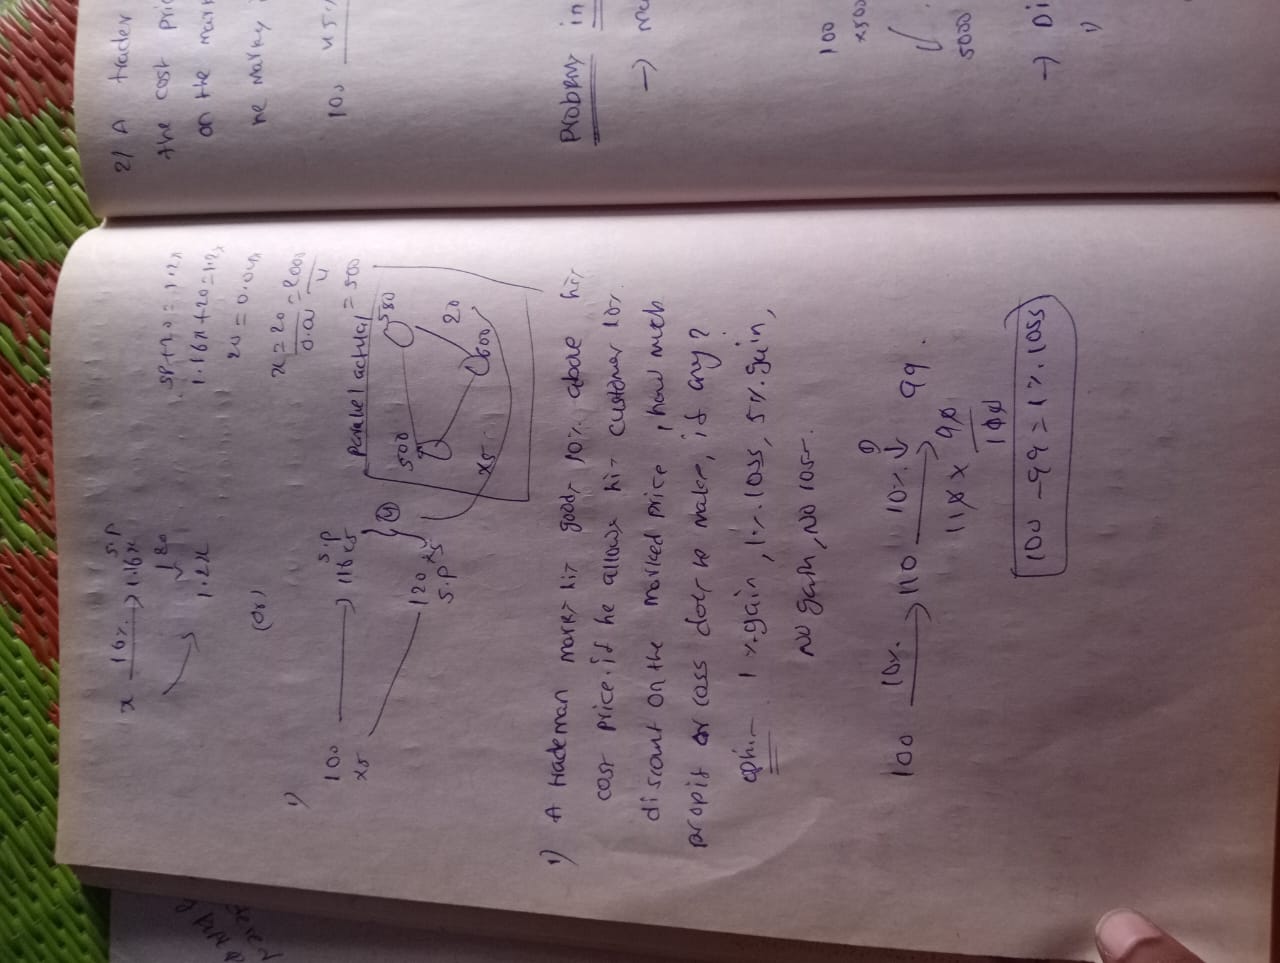 x 16% 1.16x S.P
↓ 20
1.2x
SP+20 = 1.2x
1.16x+20=1.2x
20 = 0.04x
x = 20 = 2000
0.04 4
= 500
(Or)
1)
100 116x5 S.P
x5
120 x5
S.P
4
Parallel actual
500 580
20
600
x5
1) A trademan marks his goods 10% above his
cost price. if he allows his customer 10%
discount on the marked price, how much
propit or loss does he make, if any?
opt:- 1% gain, 1% loss, 5% gain,
No gain, No loss.
100 10% 110 10% D
↓ 99.
110 x 90
100
100 - 99 = 1% loss
2) A trader
the cost pri
on the mar
he marks
100
Problem in
→
100
x500
5000
→ Di
1)